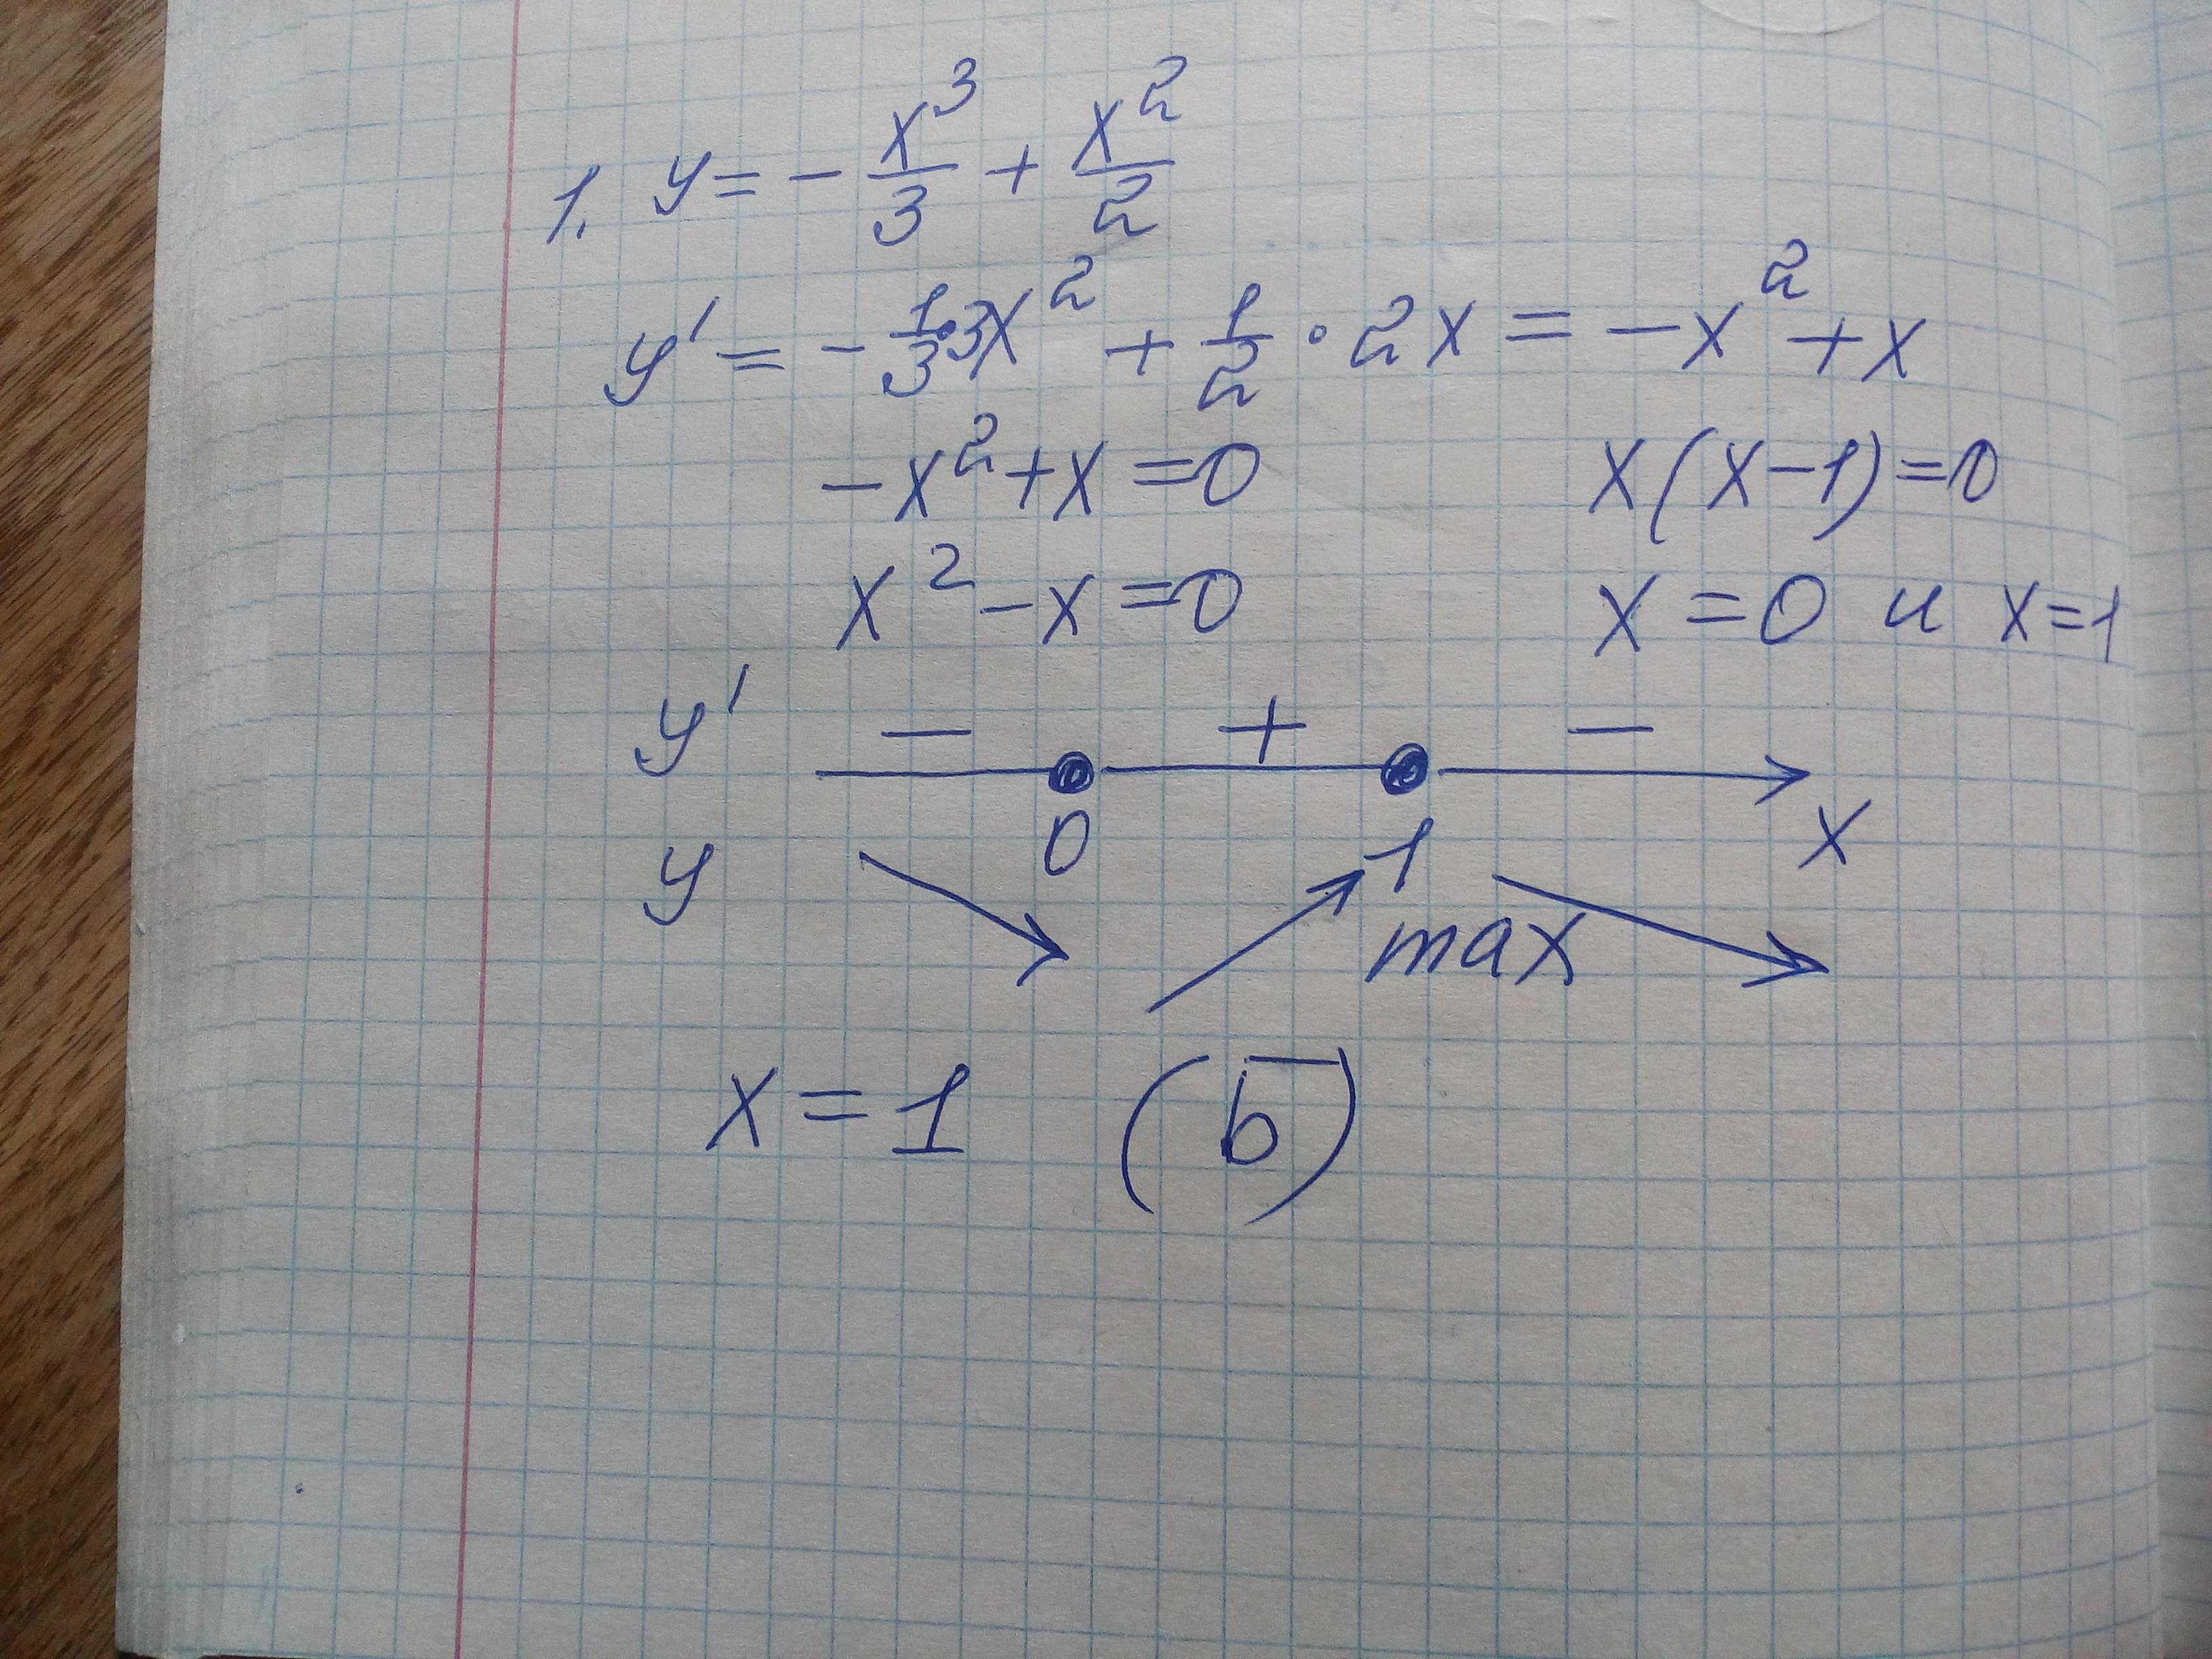 1. y = - x³/3 + x²/2
y' = - 1/3 · 3x² + 1/2 · 2x = -x² + x
-x² + x = 0    x(x-1) = 0
x² - x = 0    x = 0 и x = 1
y' - + -
0 1 x
y max
x = 1 (Б)